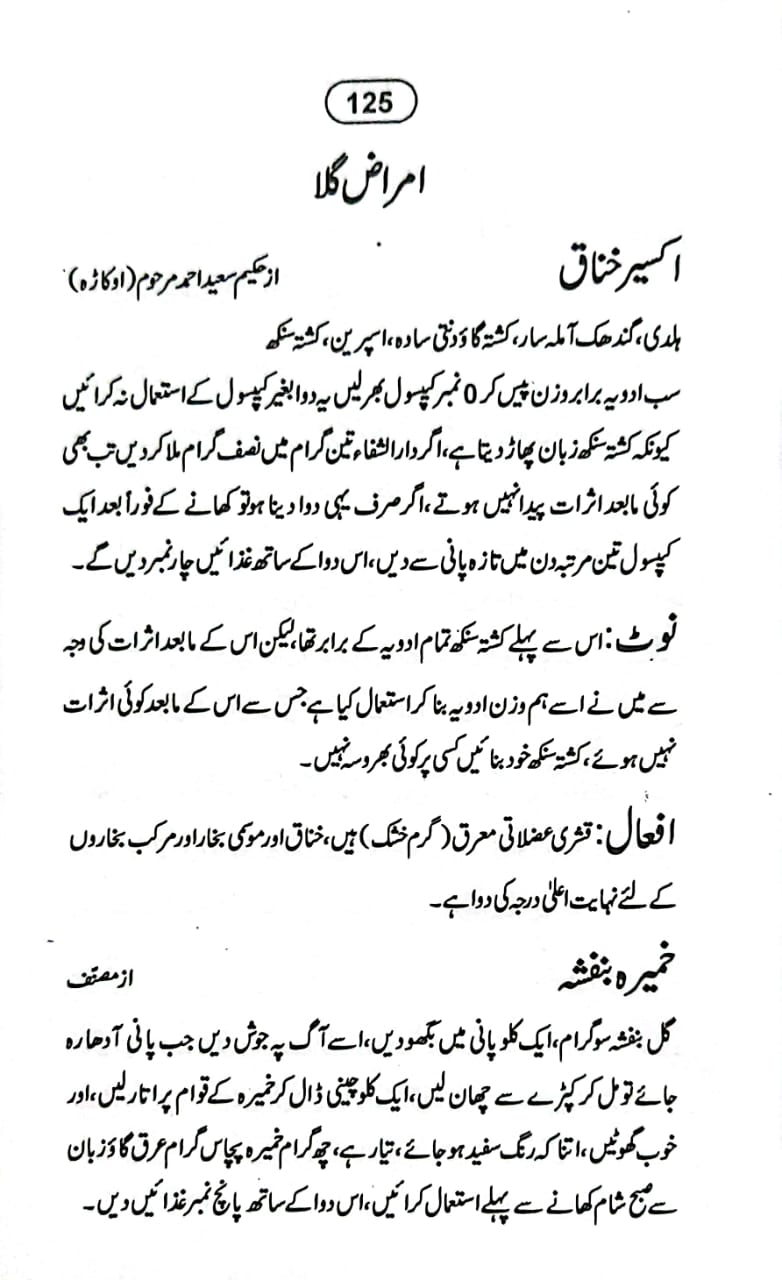 125
امراض گلا
اکسیر خناق
از حکیم سعید احمد مرحوم (اوکاڑہ)
ہلدی، گندھک آملہ سار، کشتہ گاؤدنتی سادہ، اسپرین، کشتہ سنکھ
سب ادویہ برابر وزن پیس کر 0 نمبر کیپسول بھر لیں یہ دوا بغیر کیپسول کے استعمال نہ کرائیں
کیونکہ کشتہ سنکھ زبان پھاڑ دیتا ہے، اگر دارالشفاء تین گرام میں نصف گرام ملا کر دیں تب بھی
کوئی مابعد اثرات پیدا نہیں ہوتے، اگر صرف یہی دوا دینا ہو تو کھانے کے فوراً بعد ایک
کیپسول تین مرتبہ دن میں تازہ پانی سے دیں، اس دوا کے ساتھ غذائیں چار نمبر دیں گے۔
نوٹ: اس سے پہلے کشتہ سنکھ تمام ادویہ کے برابر تھا، لیکن اس کے مابعد اثرات کی وجہ
سے میں نے اسے ہم وزن ادویہ بنا کر استعمال کیا ہے جس سے اس کے مابعد کوئی اثرات
نہیں ہوئے، کشتہ سنکھ خود بنائیں کسی پر کوئی بھروسہ نہیں۔
افعال: قشری عضلاتی معرق (گرم خشک) ہیں، خناق اور موسمی بخار اور مرکب بخاروں
کے لئے نہایت اعلیٰ درجہ کی دوا ہے۔
خمیرہ بنفشہ
از مصنف
گل بنفشہ سو گرام، ایک کلو پانی میں بگھو دیں، اسے آگ پہ جوش دیں جب پانی آدھا رہ
جائے تو مل کر کپڑے سے چھان لیں، ایک کلو چینی ڈال کر خمیرہ کے قوام پر اتار لیں، اور
خوب گھوٹیں، اتنا کہ رنگ سفید ہو جائے، تیار ہے، چھ گرام خمیرہ پچاس گرام عرق گاؤزبان
سے صبح شام کھانے سے پہلے استعمال کرائیں، اس دوا کے ساتھ پانچ نمبر غذائیں دیں۔